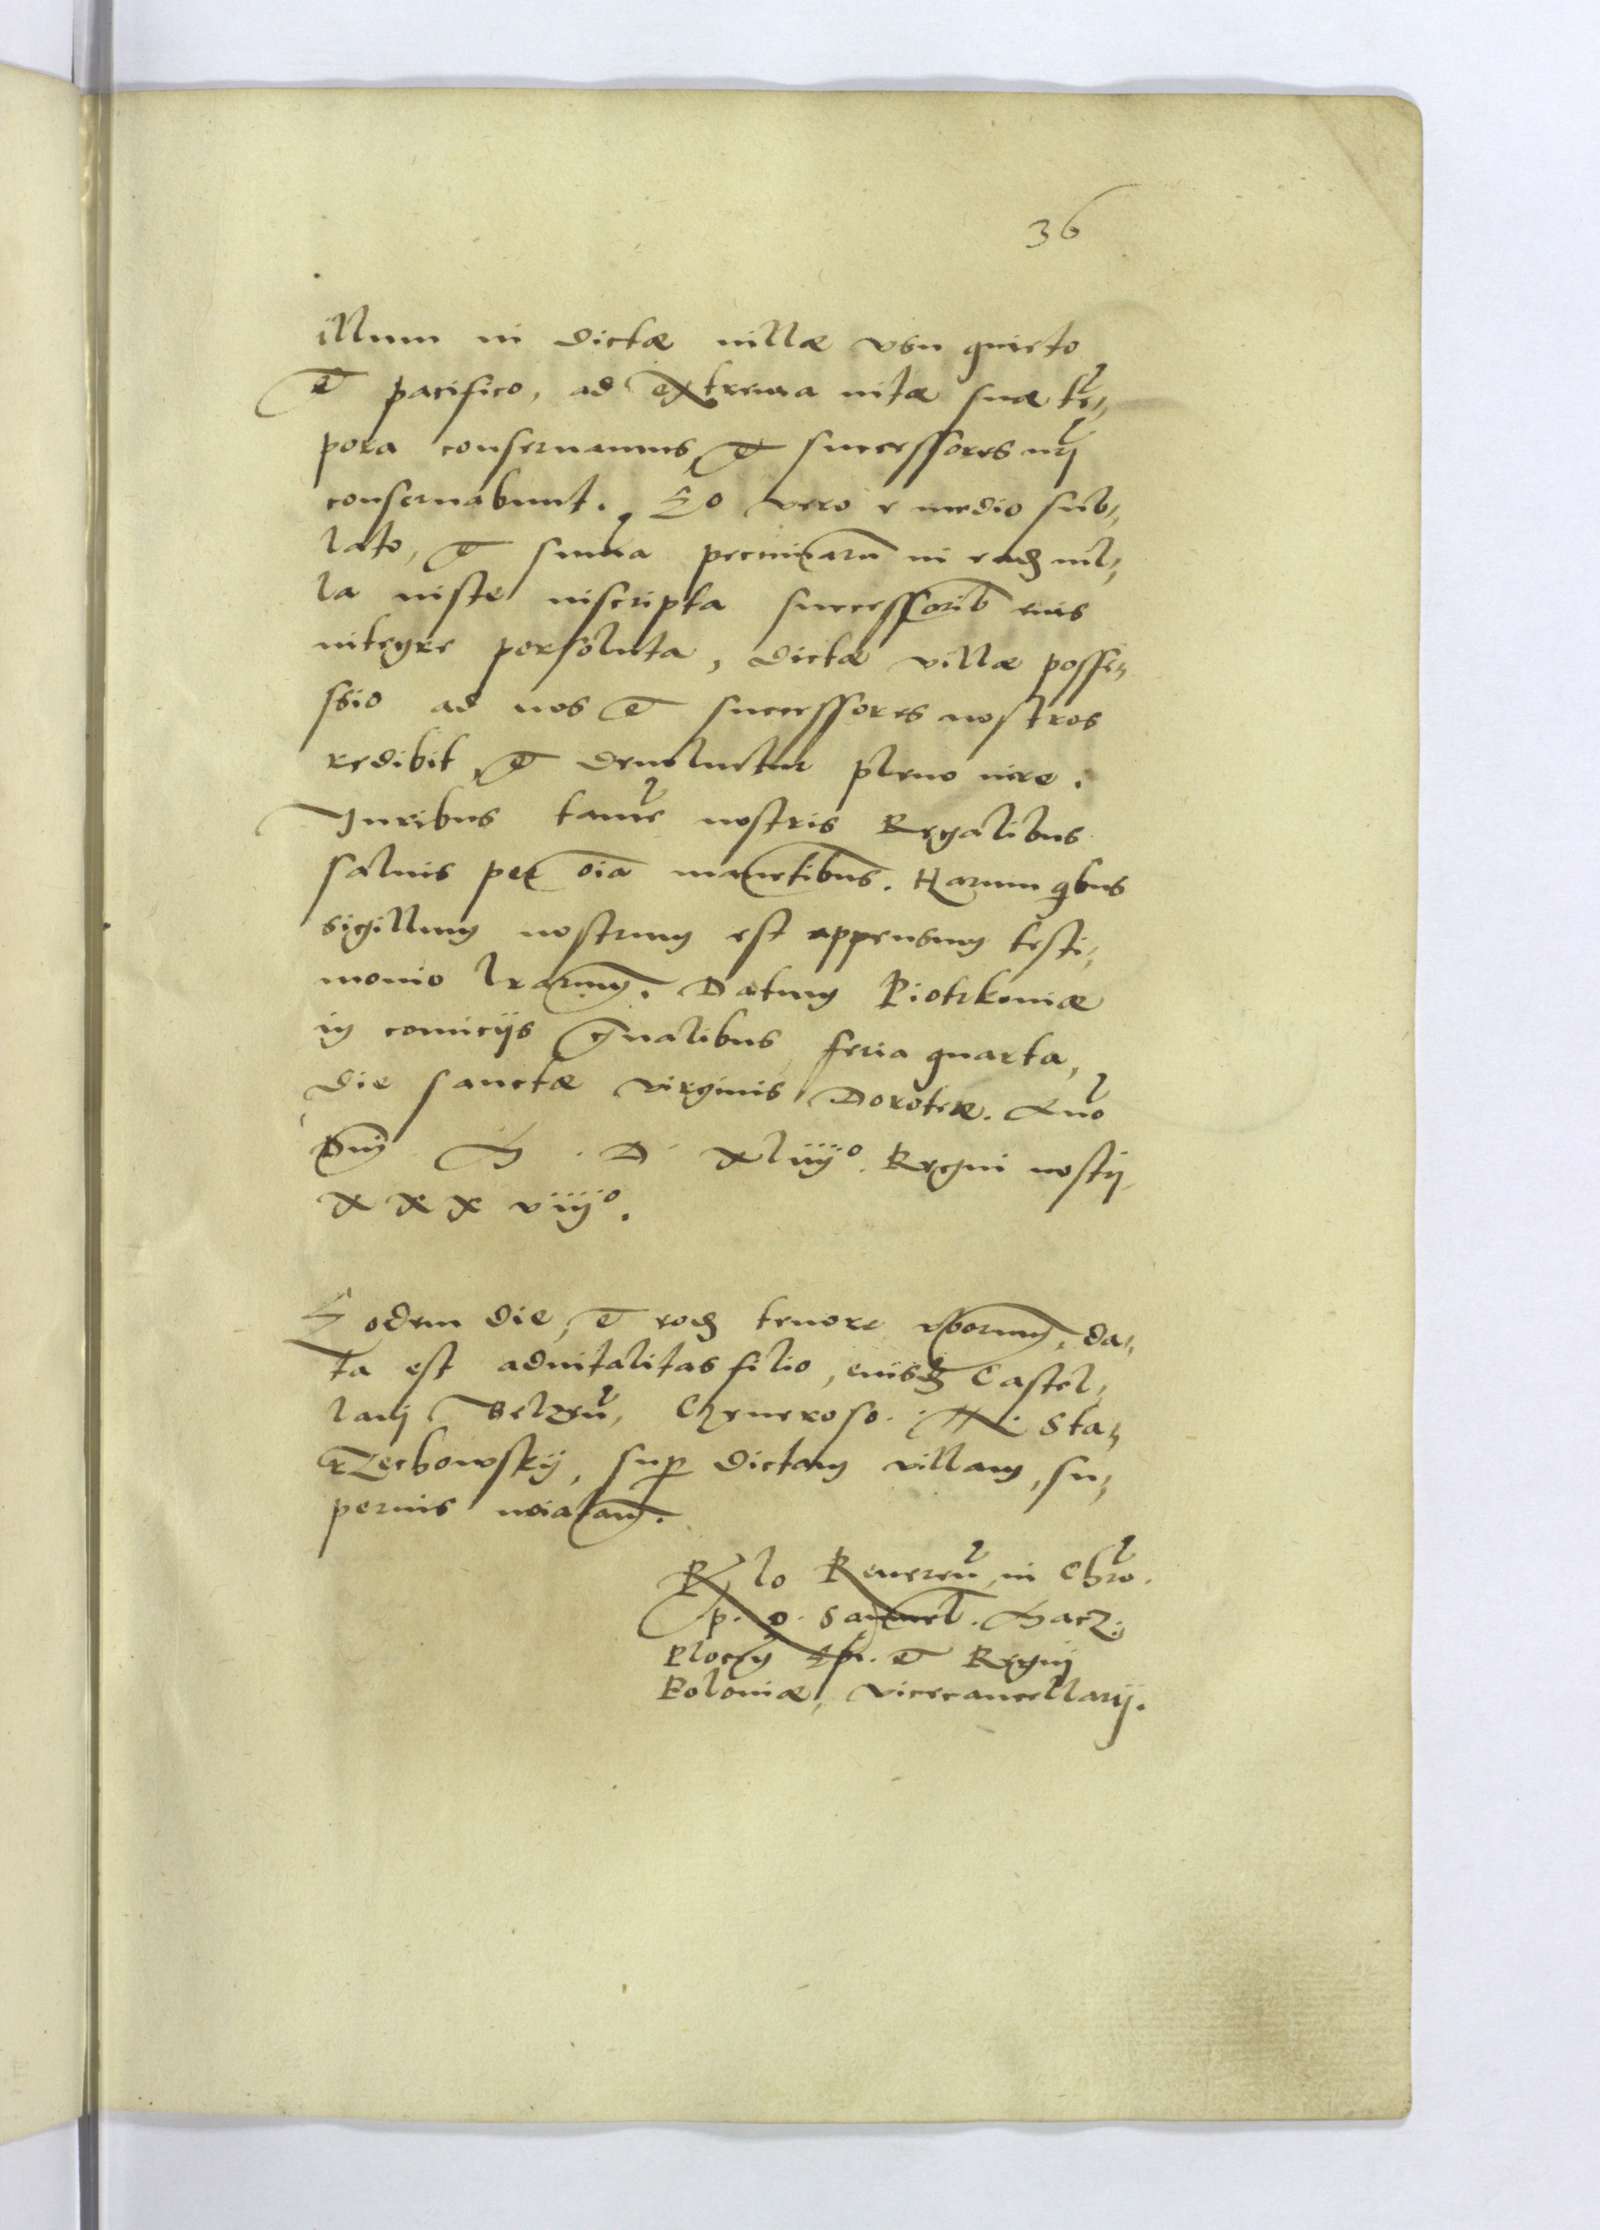 36
illum in dictæ villæ vsu quieto
et pacifico, ad extrema vitæ suæ tē-
pora conseruamus, et successores nrĩ
conseruabunt. Eo vero e medio sub-
lato, et suma pecuniarũ in eadẽ vil-
la iuste inscripta successorib eius
integre persoluta, dictæ villæ posse-
ssio ad nos et successores nostros
redibit, et deuoluetur pleno iure.
Iuribus tamē nostris Regalibus
saluis per oĩa manentibus. Harum qbus
sigillum nostrum est appensum testi-
monio lrarum. Datum Piotrkouiæ
in comicijs gnalibus feria quarta,
die sanctæ virginis Doroteæ. Anõ
Dnj M. D. xliiijº. Regni nostrj
xxx viijº.
Eodem die, et eodẽ tenore vborum, da-
ta est aduitalitas filio, eiusdẽ Castel-
lanj Belzeñ, Generoso. N. Sta-
rzechowskij, sup dictam villam, su-
perius noiatam.
Rlo Reuereñ in Chrõ.
p. D. Samuel. Macz.
Plocen Epi. et Regnj
Poloniæ, vicecancellarij.